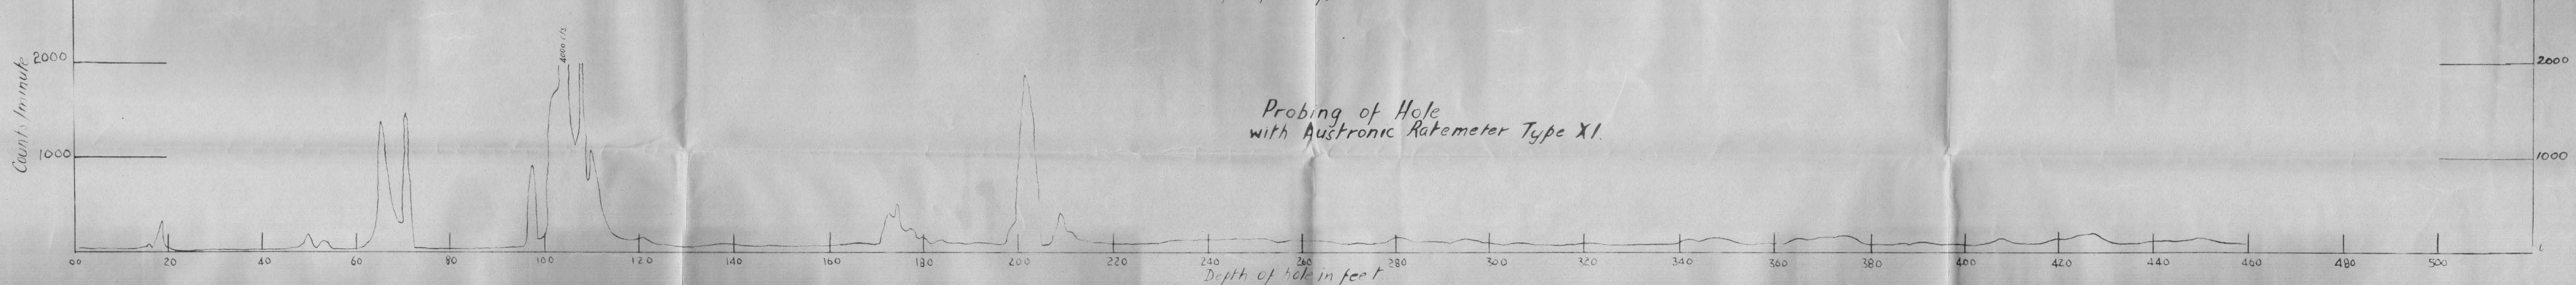 Counts/minute
2000
1000
4000 c/s
Probing of Hole
with Austronic Ratemeter Type XI.
2000
1000
00 20 40 60 80 100 120 140 160 180 200 220 240 260 280 300 320 340 360 380 400 420 440 460 480 500
Depth of hole in feet